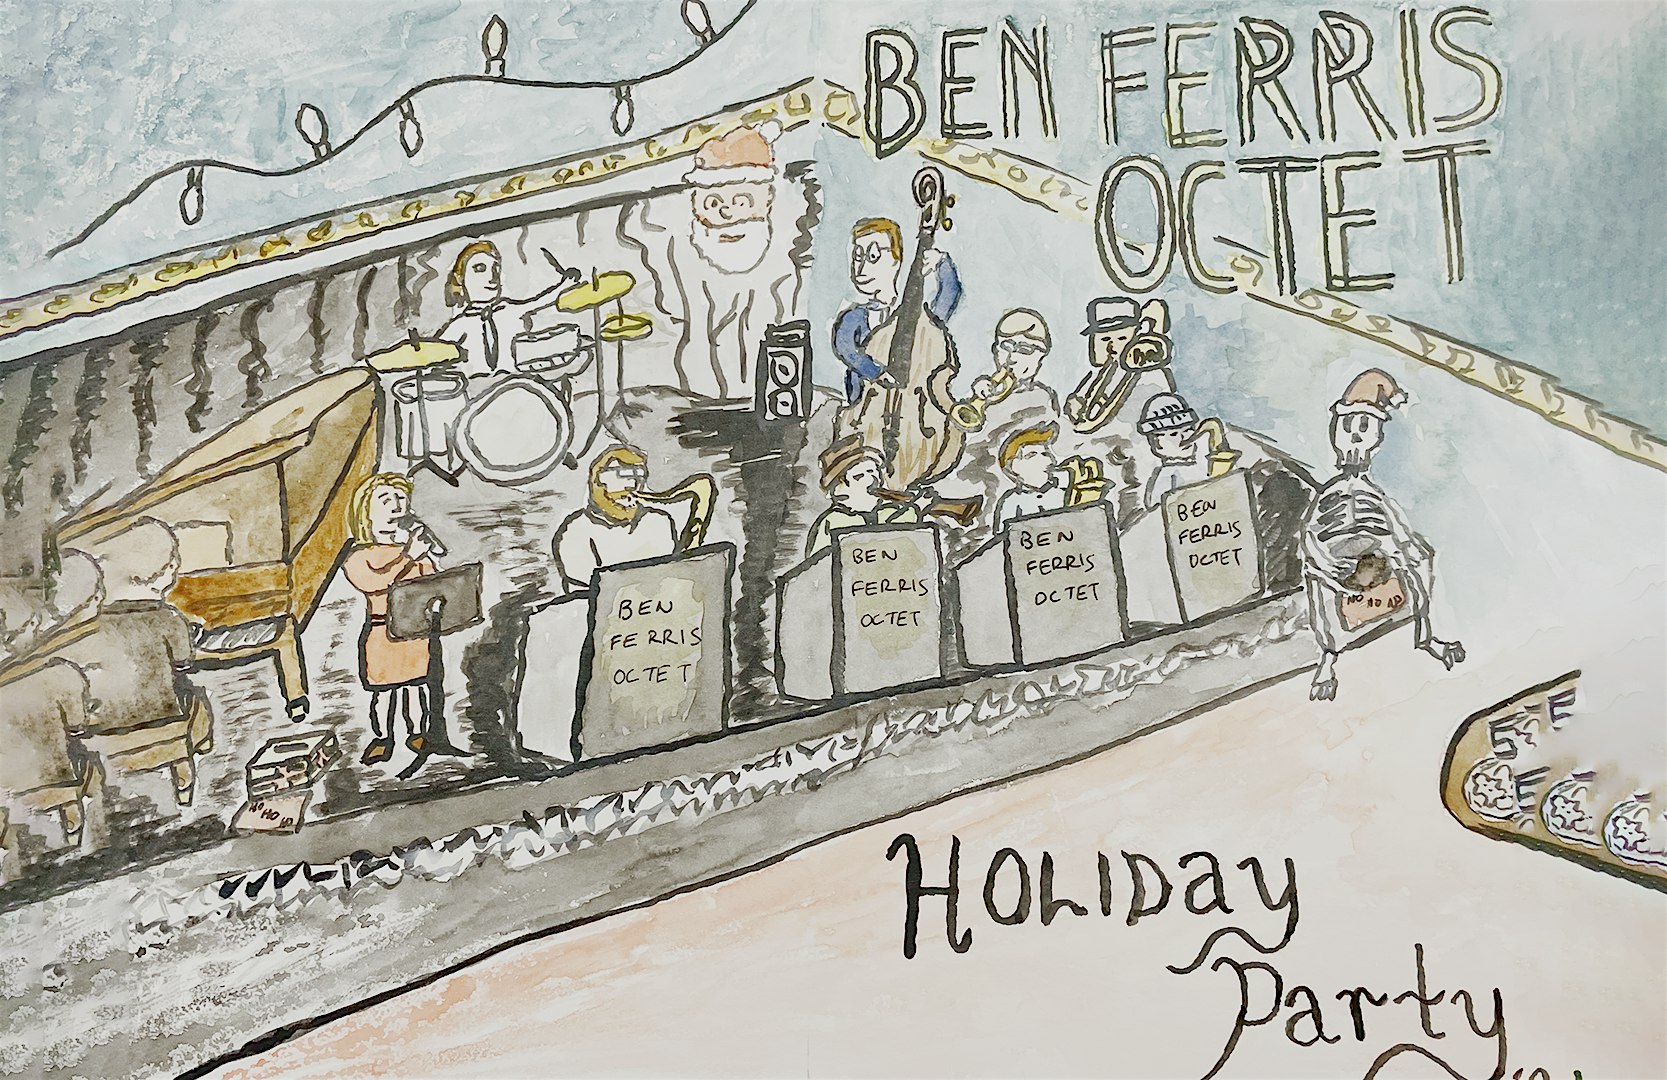 BEN FERRIS
OCTET
BEN
FERRIS
OCTET
BEN
FERRIS
OCTET
BEN
FERRIS
OCTET
BEN
FERRIS
OCTET
HO HO HO
HO HO HO
HOLIDay
Party